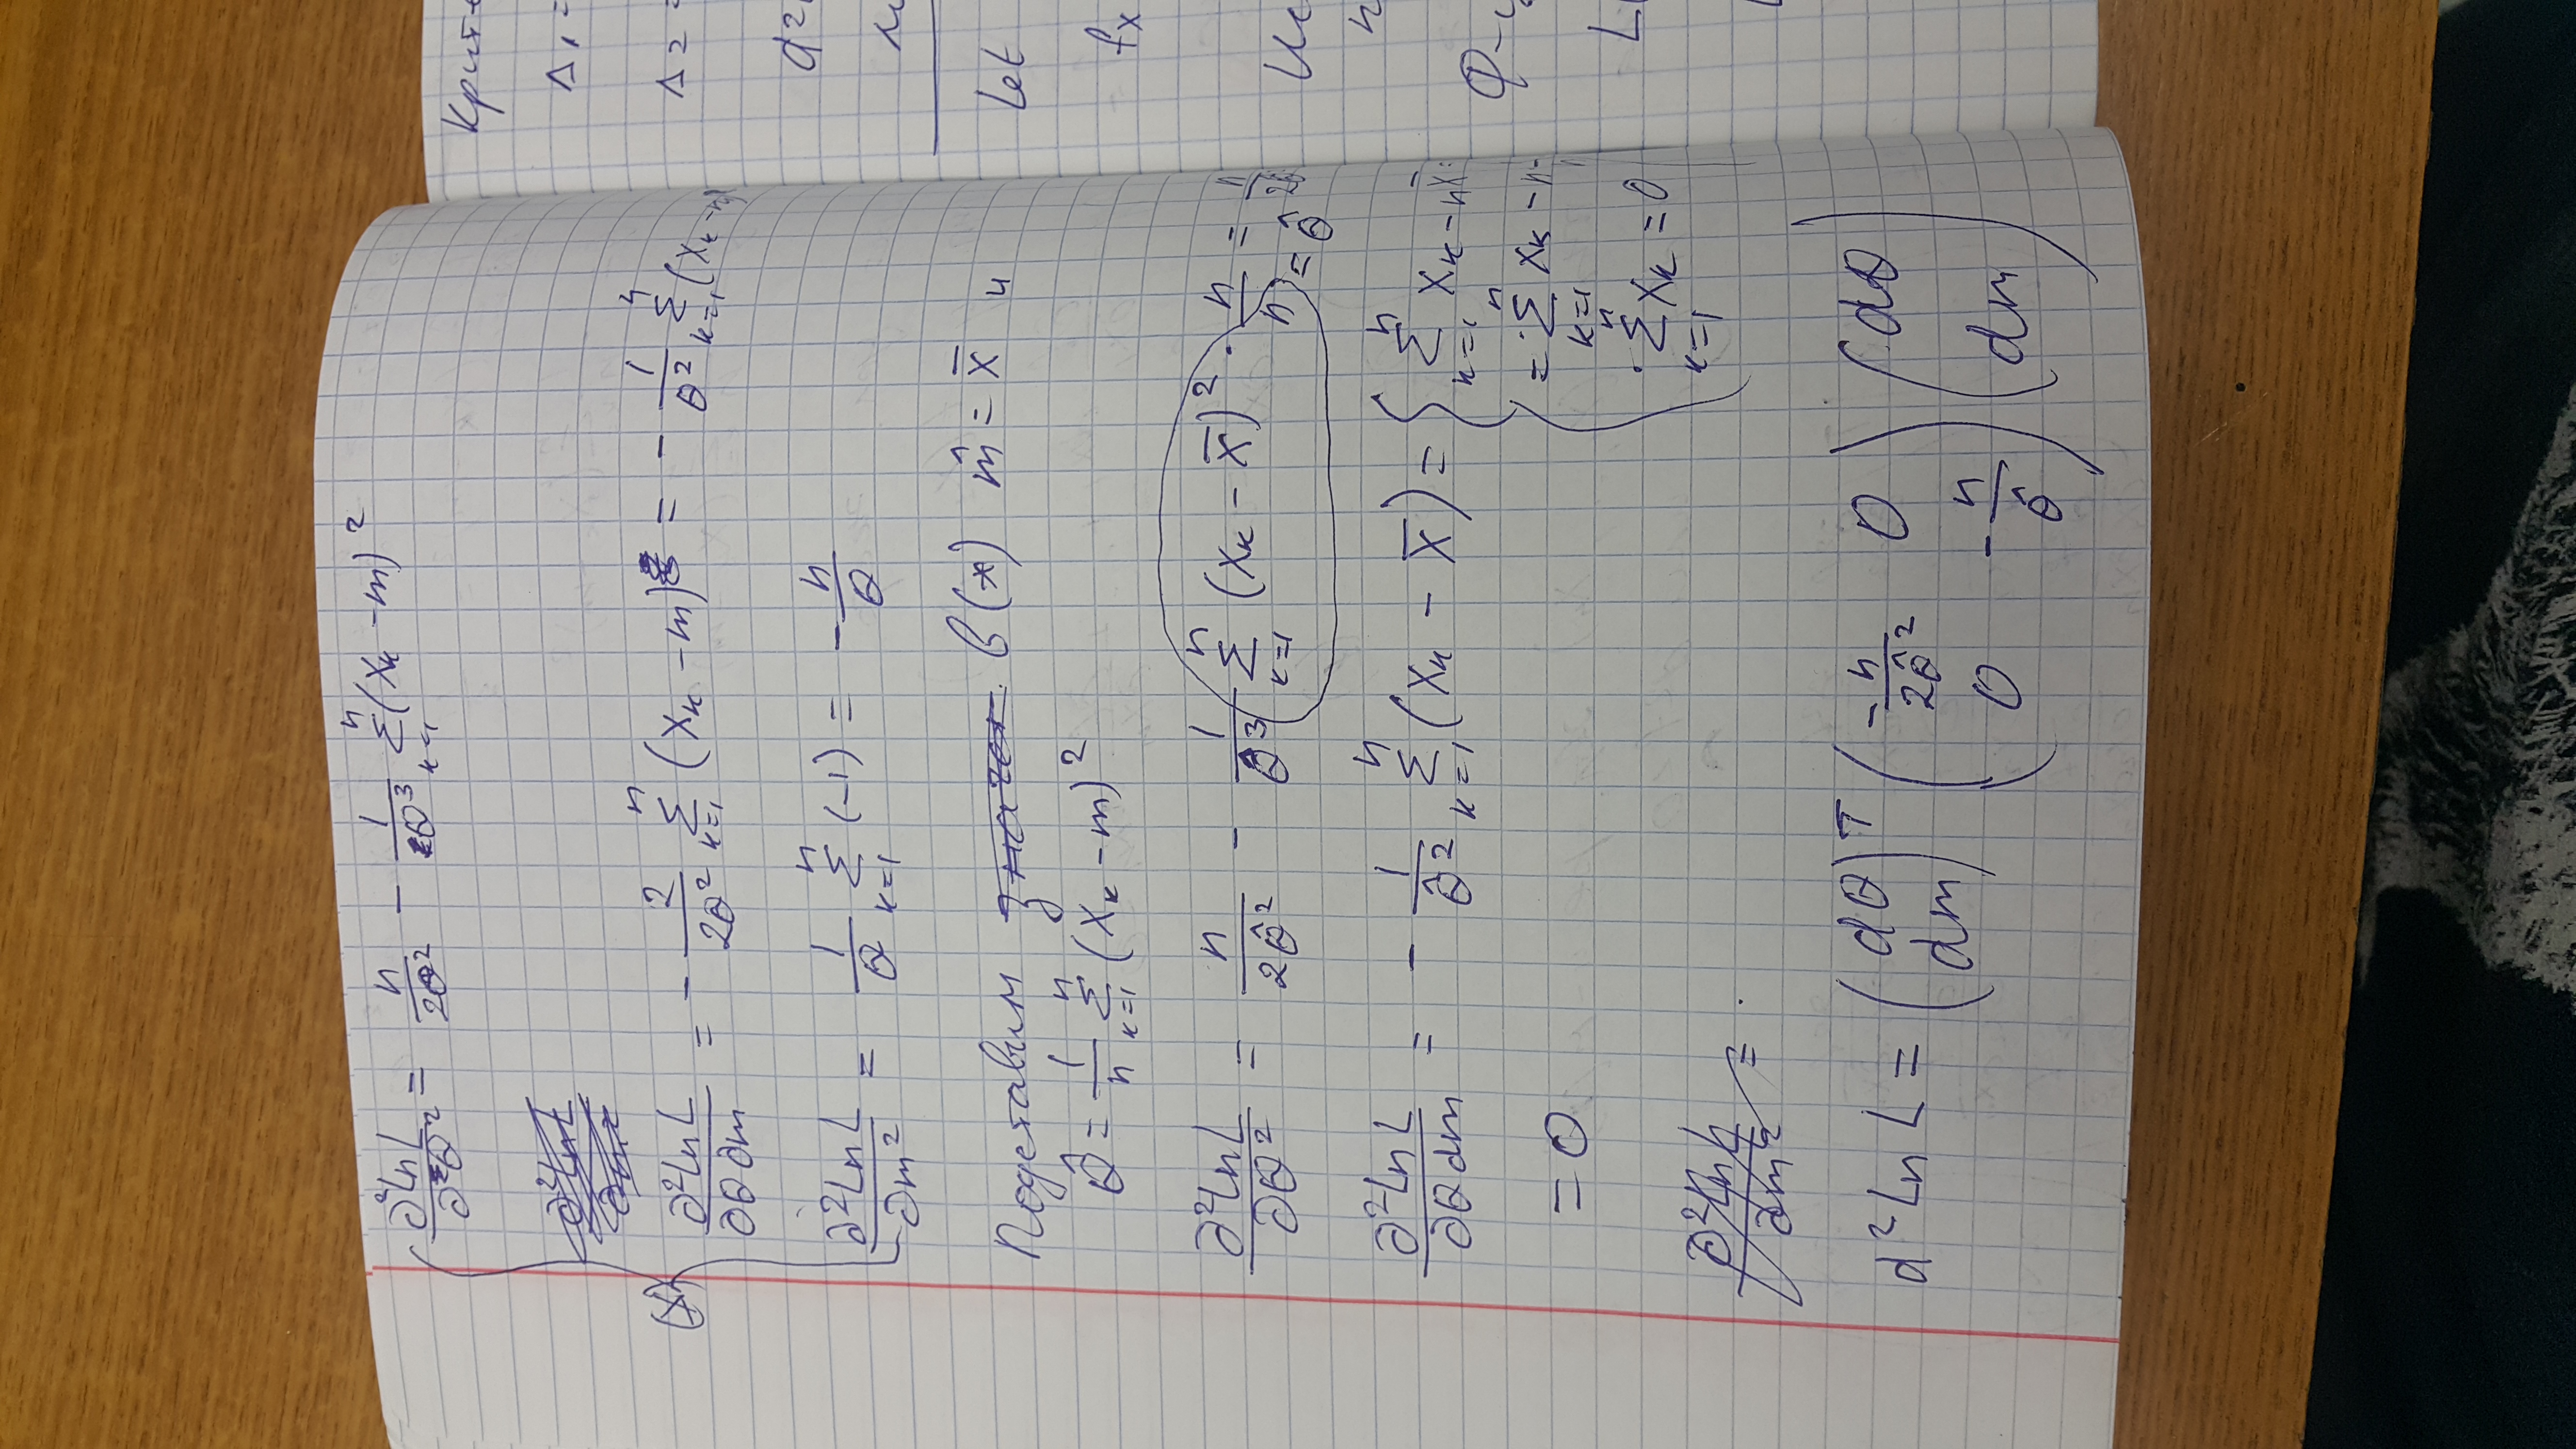 ∂²Ln L / ∂θ² = n / 2θ² - 1 / θ³ Σ_{k=1}^{n} (x_k - m)²
∂²Ln L / ∂θ ∂m = - 2 / 2θ² Σ_{k=1}^{n} (x_k - m) = - 1 / θ² Σ_{k=1}^{n} (x_k - m)
(*)
∂²Ln L / ∂m² = 1 / θ Σ_{k=1}^{n} (-1) = - n / θ
Подставим в (*) m̂ = x̄ и
θ̂ = 1 / n Σ_{k=1}^{n} (x_k - m)²
∂²Ln L / ∂θ² = n / 2θ̂² - 1 / θ̂³ Σ_{k=1}^{n} (x_k - x̄)² · n / n = n / 2θ̂
= θ̂
∂²Ln L / ∂θ dm = - 1 / θ̂² Σ_{k=1}^{n} (x_k - x̄) = { Σ_{k=1}^{n} x_k - n x̄ =
= Σ_{k=1}^{n} x_k - n ·
= 0
· Σ_{k=1}^{n} x_k = 0
∂²Ln L / ∂m² =
d² Ln L = (dθ dm)^T (-n / 2θ̂² 0 0 -n / θ̂) (dθ dm)
Крит
Δ₁ =
Δ₂ =
d²
Let
f_x
Ис
n
Ф-
L